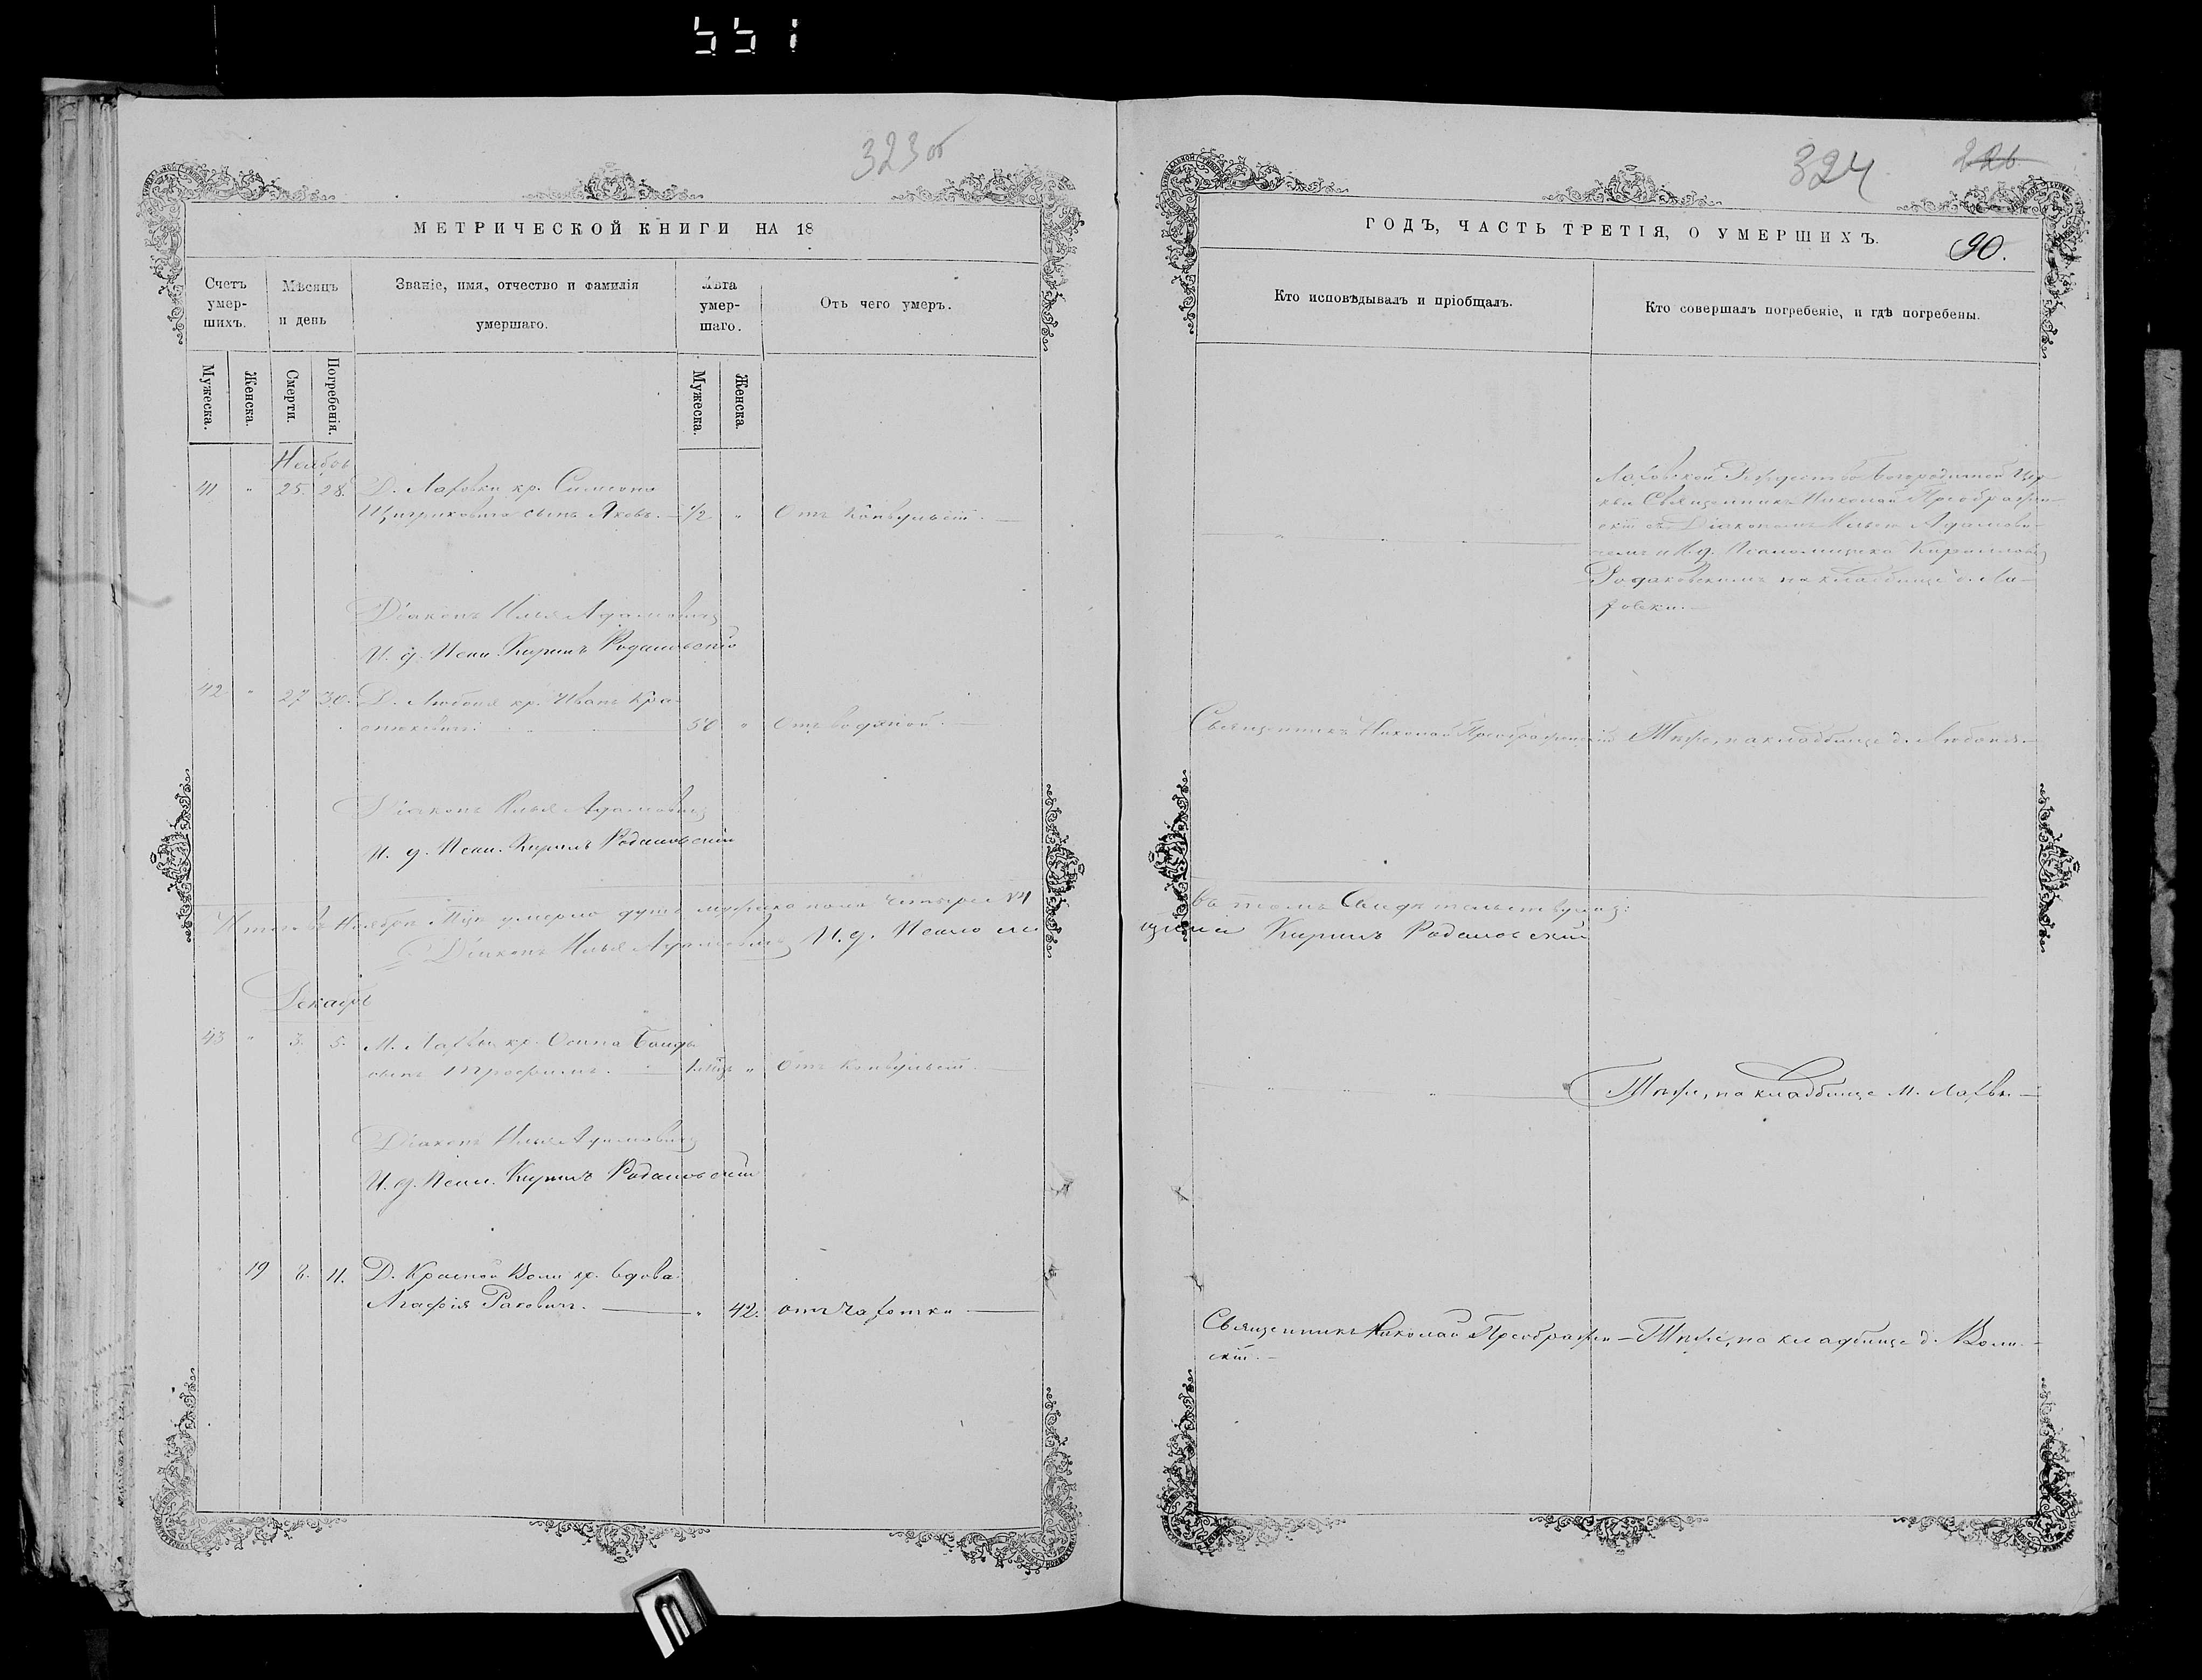 551
323 об
МЕТРИЧЕСКОЙ КНИГИ НА 18
Счетъ умер-шихъ.
Мѣсяцъ и день
Званіе, имя, отчество и фамилія умершаго.
Лѣта умер-шаго.
Отъ чего умеръ.
Мужеска.
Женска.
Смерти.
Погребенія.
Мужеска.
Женска.
Ноябрь
41 " 25. 28. Д. Лаховки кр. Симеона
сынъ Яковъ. — 1/2 " Отъ конвульсій. —
Діаконъ Илья Адамовичъ
И. д. Псал. Кирилъ Родаковскій
42 " 27 30. Д. Любоня кр. Иванъ
50 " Отъ водяной. —
Діаконъ Илья Адамовичъ
И. д. Псал. Кирилъ Родаковскій
Итого въ Ноябрѣ м-цѣ умерло душъ мужеска пола четыре
Діаконъ Илья Адамовичъ И. д. Псалом
Декабрь
43 " 3. 5. М. Лахвы кр. Осипа
сынъ Трофимъ. — " Отъ конвульсій. —
Діаконъ Илья Адамовичъ
И. д. Псал. Кирилъ Родаковскій
19 8. 11. Д. Красной Воли кр. вдова
Агафія Раковичъ. — " 42. отъ чахотки —
324
226
ГОДЪ, ЧАСТЬ ТРЕТІЯ, О УМЕРШИХЪ.
90.
Кто исповѣдывалъ и пріобщалъ.
Кто совершалъ погребеніе, и гдѣ погребены.
Лаховской Рождество Богородичной Цер-
кви Священникъ Николай Преображен-
скій съ Діакономъ Ильею Адамови-
чемъ и И. д. Псаломщика Кирилломъ
Родаковскимъ на кладбищѣ д. Ла-
ховки. —
Священникъ Николай Преображенскій
Тѣже, на кладбищѣ д. Любоня. —
въ томъ свидѣтельствуютъ:
щика Кирилъ Родаковскій
Тѣже, на кладбищѣ м. Лахвы —
Священникъ Николай Преображен-
скій. —
Тѣже, на кладбищѣ д. Воли. —